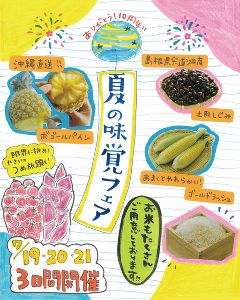 ありがとう!10周年!!
沖縄直送!!
ボゴールパイン
島根県宍道湖産
土用しじみ
夏の味覚フェア
あまくてやわらかい!
ゴールドラッシュ
限界に挑め!
やさいの
つめ放題!
お米もたくさん
ご用意しております!!
7/19・20・21
3日間開催